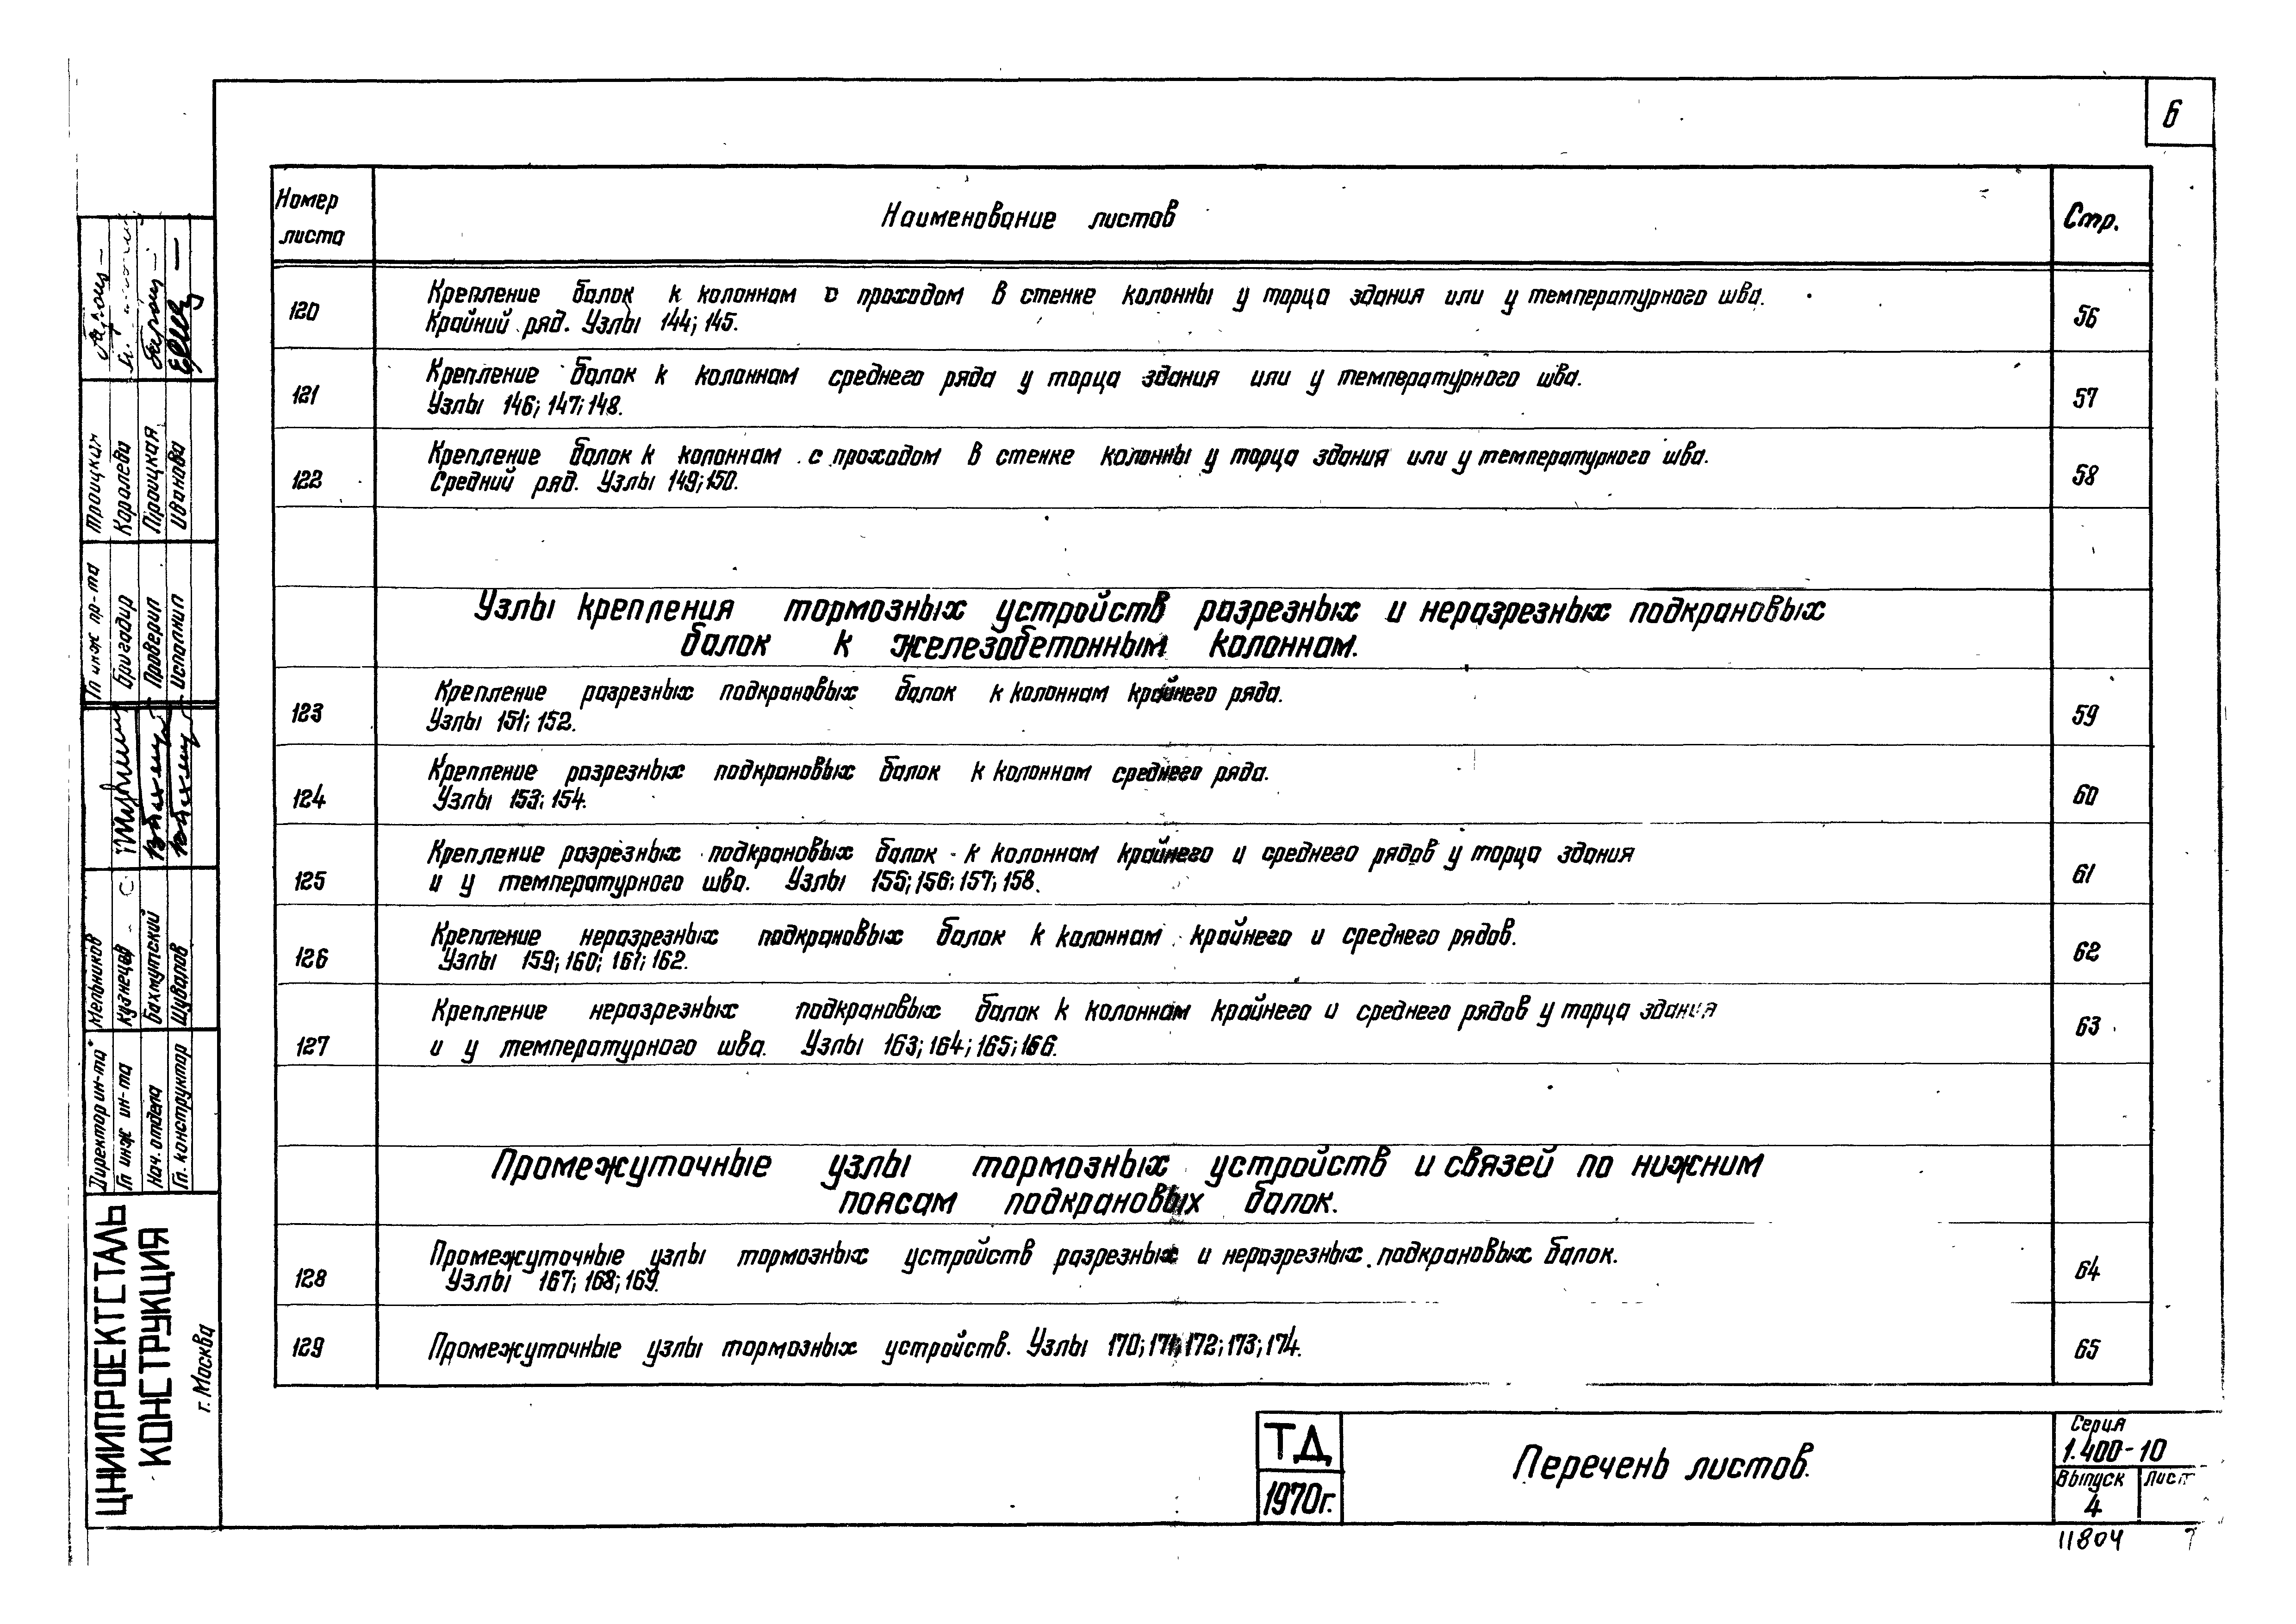 6
Номер
листа
Наименование листов
Стр.
120
Крепление балок к колоннам с проходом в стенке колонны у торца здания или у температурного шва.
Крайний ряд. Узлы 144; 145.
56
121
Крепление балок к колоннам среднего ряда у торца здания или у температурного шва.
Узлы 146; 147; 148.
57
122
Крепление балок к колоннам с проходом в стенке колонны у торца здания или у температурного шва.
Средний ряд. Узлы 149; 150.
58
Узлы крепления тормозных устройств разрезных и неразрезных подкрановых
балок к железобетонным колоннам.
123
Крепление разрезных подкрановых балок к колоннам крайнего ряда.
Узлы 151; 152.
59
124
Крепление разрезных подкрановых балок к колоннам среднего ряда.
Узлы 153; 154.
60
125
Крепление разрезных подкрановых балок к колоннам крайнего и среднего рядов у торца здания
и у температурного шва. Узлы 155; 156; 157; 158.
61
126
Крепление неразрезных подкрановых балок к колоннам крайнего и среднего рядов.
Узлы 159; 160; 161; 162.
62
127
Крепление неразрезных подкрановых балок к колоннам крайнего и среднего рядов у торца здания
и у температурного шва. Узлы 163; 164; 165; 166.
63
Промежуточные узлы тормозных устройств и связей по нижним
поясам подкрановых балок.
128
Промежуточные узлы тормозных устройств разрезных и неразрезных подкрановых балок.
Узлы 167; 168; 169.
64
129
Промежуточные узлы тормозных устройств. Узлы 170; 171; 172; 173; 174.
65
ТД
1970г.
Перечень листов.
Серия
1.400-10
Выпуск
4
Лист
11804
7
ЦНИИПРОЕКТСТАЛЬ
КОНСТРУКЦИЯ
г. Москва
Директор ин-та Мельников
Гл инж ин-та Кузнецов
Нач. отдела Бахмутский
Гл. конструктор Шувалов
Гл инж пр-та Троицкая
Бригадир Королева
Проверил Троицкая
Исполнил Иванова